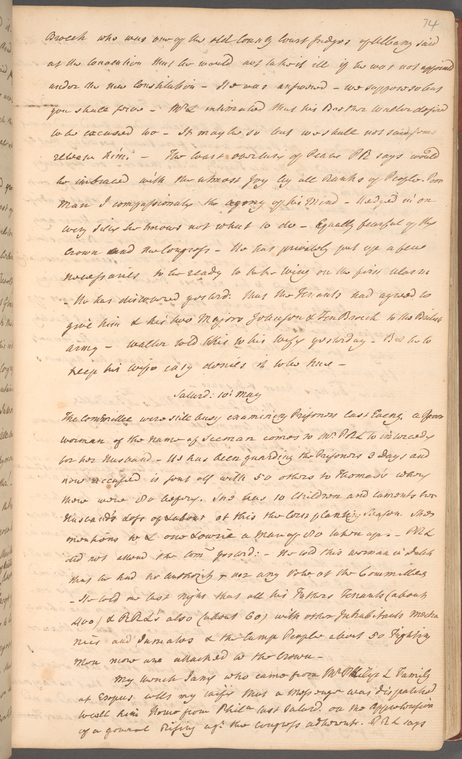 74
Broeck who was one of the old County Court Judges of Albany said
at the Convention that he would not take it ill if he was not appointed
under the new Constitution - He was answered - we suppose so but
you shall - intimated that his Brother Walter desired
to be excused too - It may be so but we shall not
release him - The least overture of Peace PR says would
be embraced with the utmost Joy by all Ranks of People. Poor
Man I compassionate the agony of his Mind - Hedged in on
every Side he knows not what to do - Equally fearful of the
Crown and the Congress - He has privately put up a few
necessaries to be ready to take wing on the first alarm
- He has discovered yesterd: that the Tenants had agreed to
give him & his two Majors Johnson & TenBroeck to the British
army - Walter told this to his wife yesterday - But he to
keep his wife easy denies it to be true -
Saturd: 10: May
The Committee were still busy examining Prisoners last Eveng. a poor
woman of the Name of comes to Mr PRL to interceed
for her Husband - He has been guarding the Prisoners 3 Days and
now accused is sent off with 50 others to where
there were 80 before. She has 10 Children and laments her
Husband's loss of Labour at this the Corn planting Season. She
mentions to L one Lowrie a Man of 80 taken up. - PRL
did not attend the Come. yesterd: - He told this woman in Dutch
that he had no authority & not any Vote at the Committee
- He told me last Night that all his Fathers Tenants (about
400) & RRL's also (about 60) with other Inhabitants
and Inmates & the Camp People about 50 Fighting
Men now are attached to the Crown -
My Wench Jany who came from Mr Philip L Family
at Esopus tells my wife that a Messenger was dispatched
to call him Home from Phila. last Saturd. on the Apprehension
of a general Rising agt. the Congress adherents. PRL says